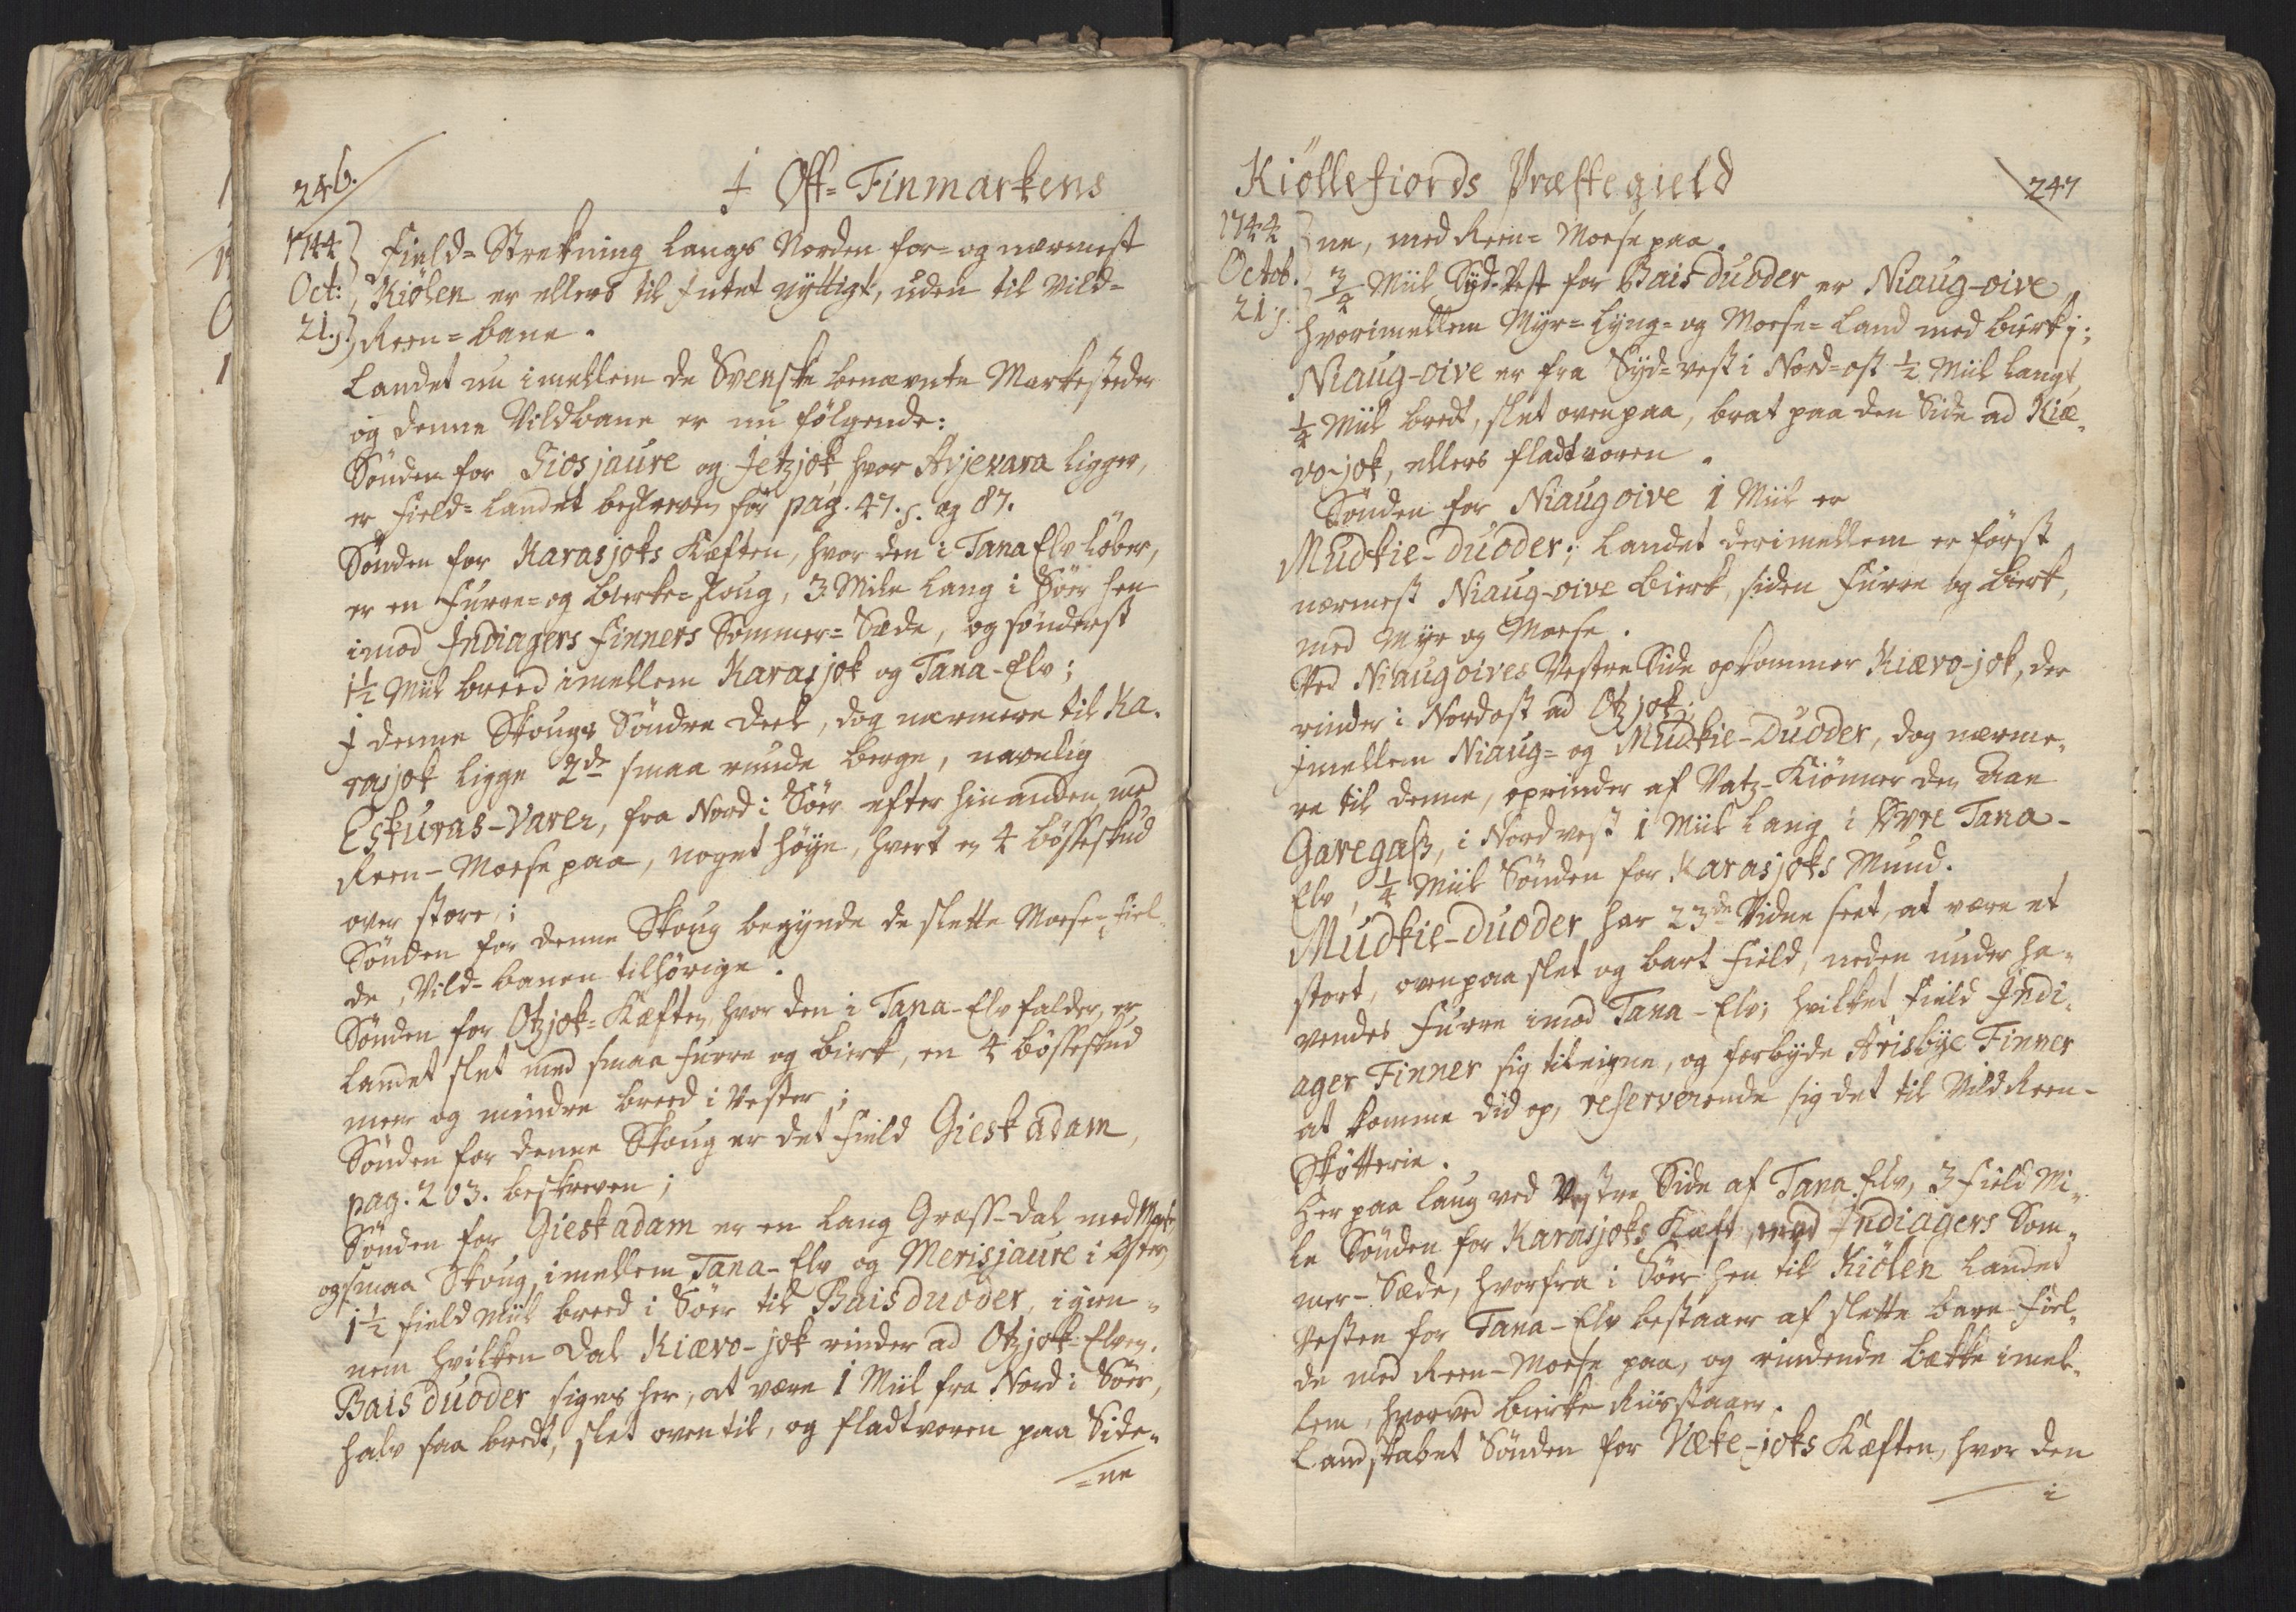 246.
I Ost-Finmarkens
1744
Oct:
21.
Field-Strekning langs Norden for- og nærmest
Kiölen er ellers til intet nyttigt, uden til Vild-
Reen-bane.
Landet nu imellem de Svenske benævnte Markesteder
og denne Vildbane er nu fölgende:
Sönden for Giosjaure og Jetzjok, hvor Avjevara ligger,
er Field-Landet beskreven för pag. 47. s. og 87.
Sönden for Karasjoks Kæften, hvor den i Tana Elv löber,
er en Furre- og Birke-skoug, 3 Mile lang i Söer hen
imod Indiagers Finners Sommer-Sæde, og sönderst
1½ Miil breed imellem Karasjok og Tana-Elv;
I denne Skougs Söndre Deel, dog nærmere til Ka-
rasjok ligge 2de smaa runde berge, navnlig
Eskuras-Varer, fra Nord i Söer efter hinanden med
Reen-Moese paa, noget höye, hvert en 4 bösseskud
over store;
Sönden for denne Skoug begynde de slette Moese-Fiel-
de, Vild-banen tilhörige.
Sönden for Otzjok-Kæften, hvor den i Tana-Elv falder, er
Landet slet med smaa Furre og birk, en 4 bösseskud
meer og mindre breed i Vester;
Sönden for denne Skoug er det Field Gieskadam,
pag. 203. beskreven;
Sönden for Gieskadam er en lang Græss-dal med
og smaa Skoug, imellem Tana-Elv og Merisjaure i Öster,
1½ Field Miil breed i Söer til Baisduoder, igien-
nem hvilken Dal Kiævo-jok rinder ad Otzjok-Elven.
Baisduoder siges her, at være 1 Miil fra Nord i Söer,
halv saa bredt, slet oventil, og fladtvoren paa Side-
-ne
Kiöllefiords Præstegield
247
1744
Octob.
21.
ne, med Reen-Moese paa.
¾ Miil Syd-Vest for Baisduoder er Niaug-oive,
hvorimellem Myr-Lyng- og Moese-Land med birk i;
Niaug-oive er fra Syd-vest i Nord-ost ½ Miil langt,
¼ Miil bredt, slet ovenpaa, brat paa den Side ad Kiæ-
vo-jok, ellers fladtvoren.
Sönden for Niaugoive 1 Miil er
Mudkie-duoder; Landet derimellem er först
nærmest Niaug-oive birk, siden Furre og birk,
med Myr og Moese.
Ved Niaugoives Vestre Side opkommer Kiævo-jok, der
rinder i Nordost ad Otzjok;
Imellem Niaug- og Mudkie-Duoder, dog nærme-
re til denne, oprinder af Vatz-Kiönner den Aae
Garegass, i Nordvest 1 Miil lang i Övre Tana-
Elv, ¼ Miil Sönden for Karasjoks Mund.
Mudkie-duoder har 23de Vidne seet, at være et
stort, ovenpaa slet og bart Field, neden under ha-
vendes Furre imod Tana-Elv; hvilket Field Indi-
ager Finner sig tileigne, og forbyde Arisbye Finner
at komme did op, reserverende sig det til Vild Reen-
Skötterie.
Her paa laug ved Vestre Side af Tana Elv, 3 Field Mi-
le Sönden for Karasjoks Kæft, Indiagers Som-
mer-Sæde, hvorfra i Söer hen til Kiölen Landet
Vesten for Tana-Elv bestaaer af slette bare Fiel-
de med Reen-Moese paa, og rindende bække imel-
lem, hvorved birke Riis staaer.
Landskabet Sönden for Væke-joks Kæften, hvor den
i